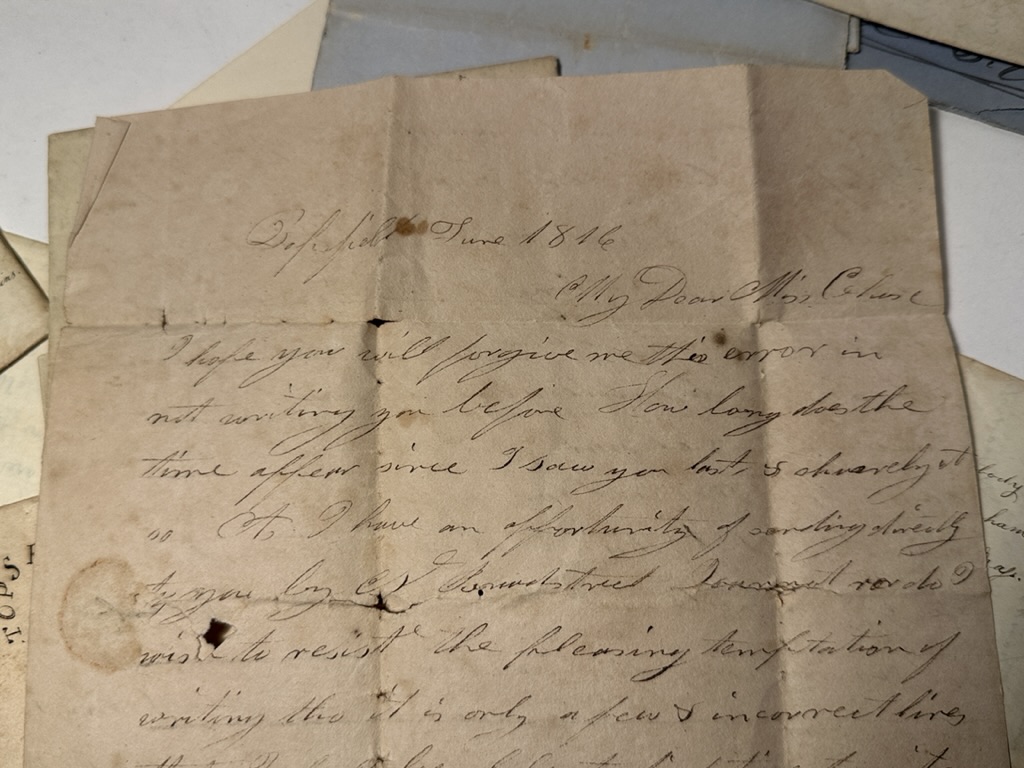 Topsfield June 1816
My Dear Miss
I hope you will forgive me this error in
not writing you before How long does the
time appear since I saw you last &
so As I have an opportunity of sending directly
to you by I cannot nor do I
wish to resist the pleasing temptation of
writing tho it is only a few & incorrect lines
TOPS